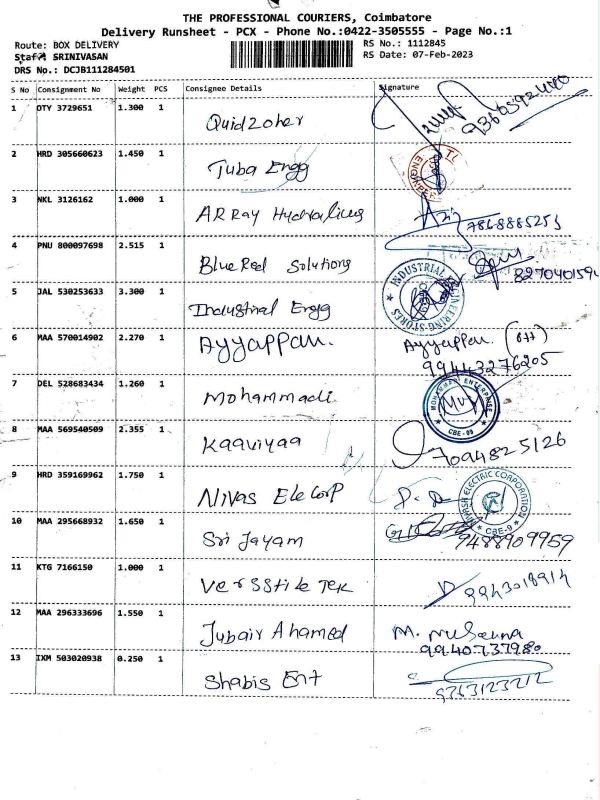 THE PROFESSIONAL COURIERS, Coimbatore
Delivery Runsheet - PCX - Phone No.:0422-3505555 - Page No.:1
Route: BOX DELIVERY
RS No.: 1112845
Staff: SRINIVASAN
RS Date: 07-Feb-2023
DRS No.: DCJB111284501
S No Consignment No Weight PCS Consignee Details Signature
1 OTY 3729651 1.300 1
Quidzoher
2 HRD 305660623 1.450 1
Tuba Engg
3 NKL 3126162 1.000 1
ARRay Hydralics
7868885253
4 PNU 800097698 2.515 1
BlueRed Solutions
5 JAL 530253633 3.300 1
Industrial Engg
INDUSTRIAL ENGINEERING STORES
6 MAA 570014902 2.270 1
Ayyappan. Ayyappan.
99443276205
7 DEL 528683434 1.260 1
Mohammadi
MOHAMMADI ENTERPRISE
CBE-09
8 MAA 569540509 2.355 1
Kaaviyaa 7094825126
9 HRD 359169962 1.750 1
Nivas Elecorp
ELECTRIC CORPORATION
CBE-9
10 MAA 295668932 1.650 1
Sri Jayam 9488909959
11 KTG 7166150 1.000 1
Versstile Tek 9943018914
12 MAA 296333696 1.550 1
Jubair Ahamed
9940737980
13 IXM 503020938 0.250 1
Shabis Ent
9363123212